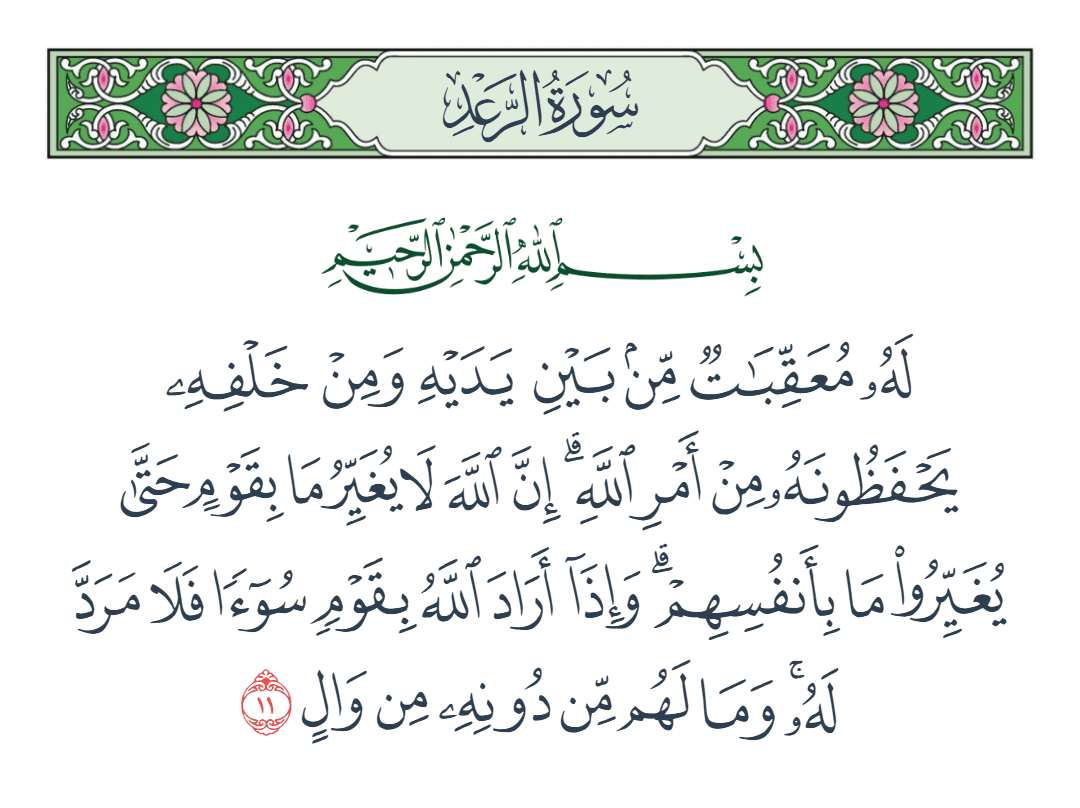 سُورَةُ الرَّعْدِ
بِسْمِ ٱللَّهِ ٱلرَّحْمَٰنِ ٱلرَّحِيمِ
لَهُۥ مُعَقِّبَـٰتٌۭ مِّنۢ بَيْنِ يَدَيْهِ وَمِنْ خَلْفِهِۦ
يَحْفَظُونَهُۥ مِنْ أَمْرِ ٱللَّهِ ۗ إِنَّ ٱللَّهَ لَا يُغَيِّرُ مَا بِقَوْمٍ حَتَّىٰ
يُغَيِّرُوا۟ مَا بِأَنفُسِهِمْ ۗ وَإِذَآ أَرَادَ ٱللَّهُ بِقَوْمٍۢ سُوٓءًۭا فَلَا مَرَدَّ
لَهُۥ ۚ وَمَا لَهُم مِّن دُونِهِۦ مِن وَالٍ ١١